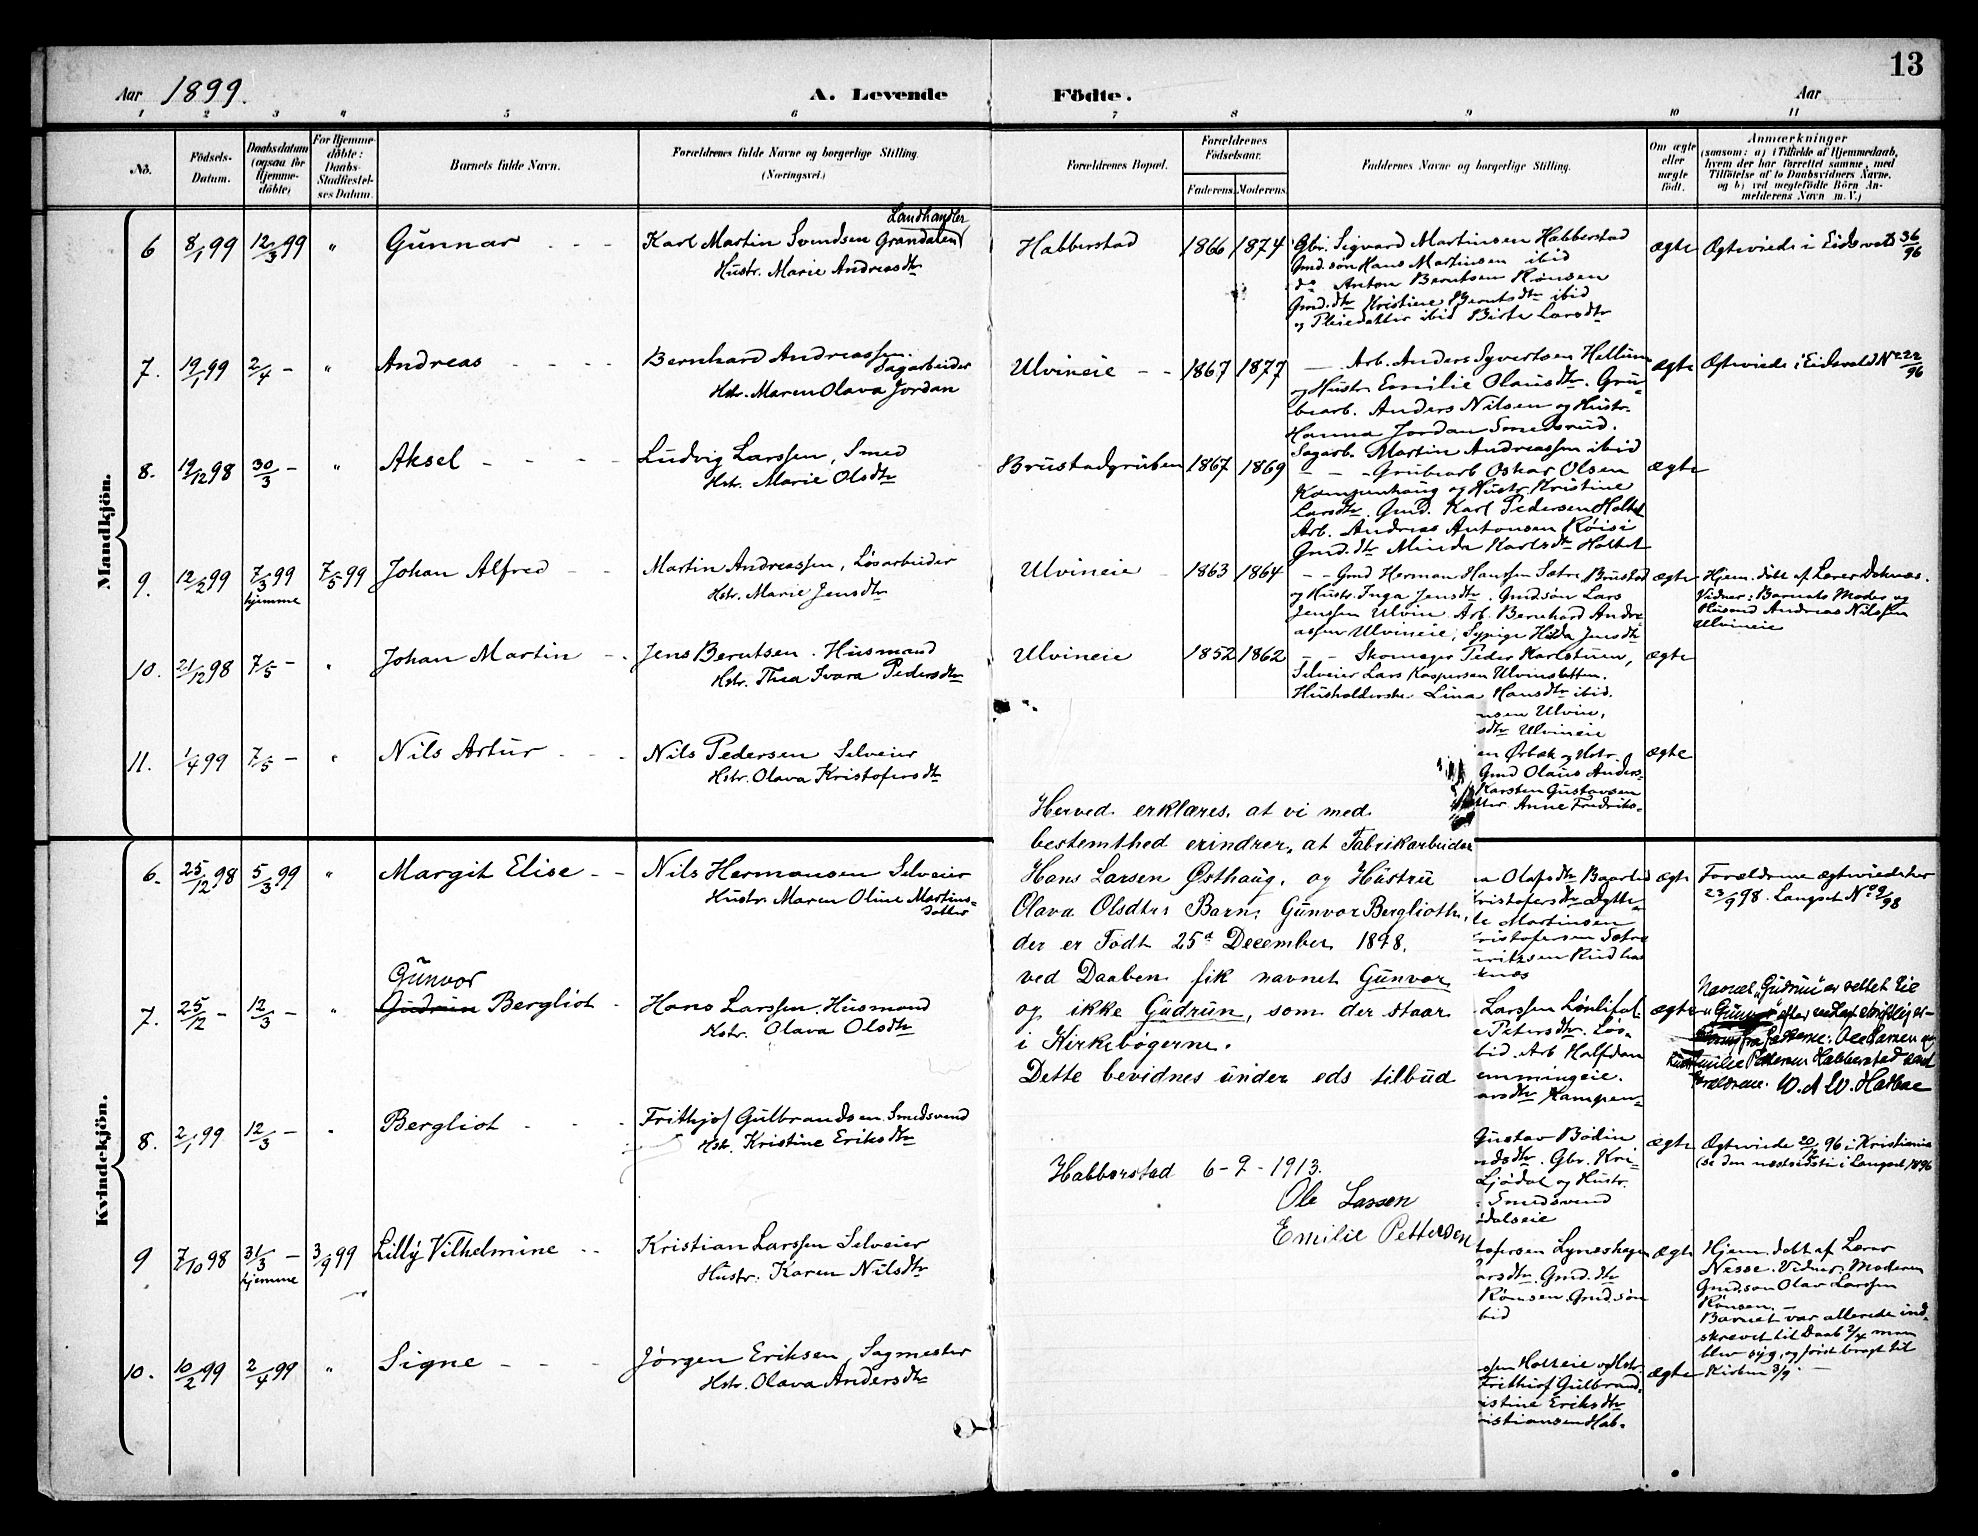 13
Aar 1899. A. Levende Födte. Aar
1 2 3 4 5 6 7 8 9 10 11
No. Födsels-Datum. Daabsdatum (ogsaa for Hjemme-döbte) For Hjemme-döbte: Daabs-Stadfæstelses Datum. Barnets fulde Navn. Forældrenes fulde Navne og borgerlige Stilling. (Næringsvei.) Forældrenes Bopæl. Forældrenes Födselsaar. Faderens. Moderens. Faddernes Navne og borgerlige Stilling. Om ægte eller uægte födt. Anmærkninger (saasom: a) i Tilfælde af Hjemmedaab, hvem der har forrettet samme, med Tilföielse af to Daabsvidners Navne, og b) ved uægtefödte Börn Anmelderens Navn m. V.)
Mandkjön.
6 8/1 99 12/3 99 " Gunnar - - -
Landhandler
Karl Martin Svendsen Grandalen
Hustr. Marie Andreasdtr
Habberstad 1866 1874
Gbr. Sigvard Martinsen Habberstad
Gmd.søn Hans Martinsen ibid
do Anton Berntsen Rønsen
Gmd.dtr Kristine Berntsdtr ibid
og Pleiedatter ibid Birte Larsdtr
ægte Ægteviede i Eidsvold 36/96
7. 19/1 99 2/4 - " Andreas - - - -
Bernhard Andreassen.
Sagarbeider
Hstr. Maren Olava Jordan
Ulvineie - - 1867 1877
Arb. Anders Syvertsen Hellum
og Hustr Emilie Olausdtr. Gru-
bearb. Anders Nilsen og Hustr.
Hanna Jordan Smedsrud.
Sagarb. Martin Andreassen ibid
ægte Ægteviede i Eidsvold No 22/96
8. 19/12 98 30/3 - " Aksel - - - -
Ludvig Larssen, Smed
Hstr. Marie Olsdtr
Brustadgruben 1867 1869
- - Grubearb Oskar Olsen
Kampenhaug og Hustr Kristine
Larsdtr. Gmd. Karl Pedersen Holtet
Arb. Andreas Antonsen Røisi
Gmd.dtr Minda Karlsdtr Holtet
ægte
9. 12/2 99 7/3 99 hjemme 7/5 99 Johan Alfred - -
Martin Andreassen, Løsarbeider
Hstr. Marie Jensdtr
Ulvineie - 1863 1864
- - Gmd Herman Hanssen Sætre Brustad
og Hustr. Inga Jensdtr. Gmdsøn Lars
Jenssen Ulvin Arb. Bernhard Andre-
assen Ulvineie, Sypige Hilda Jensdtr
ægte Hjem. døbt af Lærer Doknæs.
Vidner: Barnets Moder og
Husmd Andreas Nilssen
Ulvineie
10. 21/12 98 7/5 - " Johan Martin - -
Jens Berntsen. Husmand
Hstr. Thea Ivara Pedersdtr
Ulvineie 1852 1862
- - Skomager Peder Karlstuen,
Selveier Lars Kaspersen Ulvinsletten.
Husholderske Lina Hansdtr ibid.
nsen Ulvin,
sdtr Ulvineie
ægte
11. 1/4 99 7/5 - " Nils Artur - - -
Nils Pedersen Selveier
Hstr. Olava Kristofersdtr
en Ørbæk og Hstr.
Gmd Olaus Anders-
Karsten Gustavsen
tter Anne Fredriks-
ægte
Kvindekjön.
6. 25/12 98 5/3 99 " Margit Elise - -
Nils Hermansen Selveier
Hustr. Maren Oline Martins-
datter
na Olafsdtr Baarlid
Kristofersdtr
te Martinsen
ristofersen Sætre
uritzsen Rudhas
knæs
ægte Forældrene ægteviede her
23/9 98. Langset No 9/98
7. 25/12 - 12/3 - "
Gunvor
Gudrun Bergliot -
Hans Larssen. Husmand
Hstr. Olava Olsdtr
Larssen Lønlifal
e Petersdtr. Løs-
bid. Arb Halfdan
emmingeie.
arsdtr Kampen-
ægte
Navnet "Gudrun" er rettet til
"Gunvor" efter
fra Fadderne: Ole Larsen og
Emilie Pettersen Habberstad samt
Forældrene. W. A. W.
8. 2/1 99 12/3 - " Bergliot - - -
Frithjof Gulbrandsen Smedsvend
Hstr. Kristine Eriksdtr
Gustav Bødin
ndsdtr. Gbr. Kri-
Ljødal og Hustr.
Smedsvend
dalseie
ægte Ægteviede 20/12 96 i Kristiania
(se den næstsidste i Langset 1896
9 7/10 98 31/3 - hjemme 3/9 99 Lilly Vilhelmine - -
Kristian Larssen Selveier
Hustr. Karen Nilsdtr
tofersen Lyneshagen
arsdtr. Gmd.dtr
Rønsen. Gmd.søn
bid
ægte Hjem. døbt af Lærer
Nesse. Vidner. Moderen
Gmd.søn Olav Larssen
Rønsen. -
Barnet var allerede ind-
skrevet til Daab 2/4 men
blev syg, og først bragt til
Kirken 3/9. -
10. 10/2 99 2/4 99 " Signe - - -
Jørgen Eriksen, Sagmester
Hstr. Olava Andersdtr
ssen Holteie og Hstr.
Frithjof Gulbrand-
ristine Eriksdtr
ristiansen Hab.
ægte
Herved erklæres, at vi med
bestemthed erindrer, at Fabrikarbeider
Hans Larsen Østhaug, og Hustru
Olava Olsdters Barn, Gunvor Bergliot,
der er Født 25d December 1898.
ved Daaben fik navnet Gunvor
og ikke Gudrun, som der staar
i Kirkebøgerne.
Dette bevidnes under eds tilbud
Habberstad 6-9-1913.
Ole Larsen
Emilie Pettersen